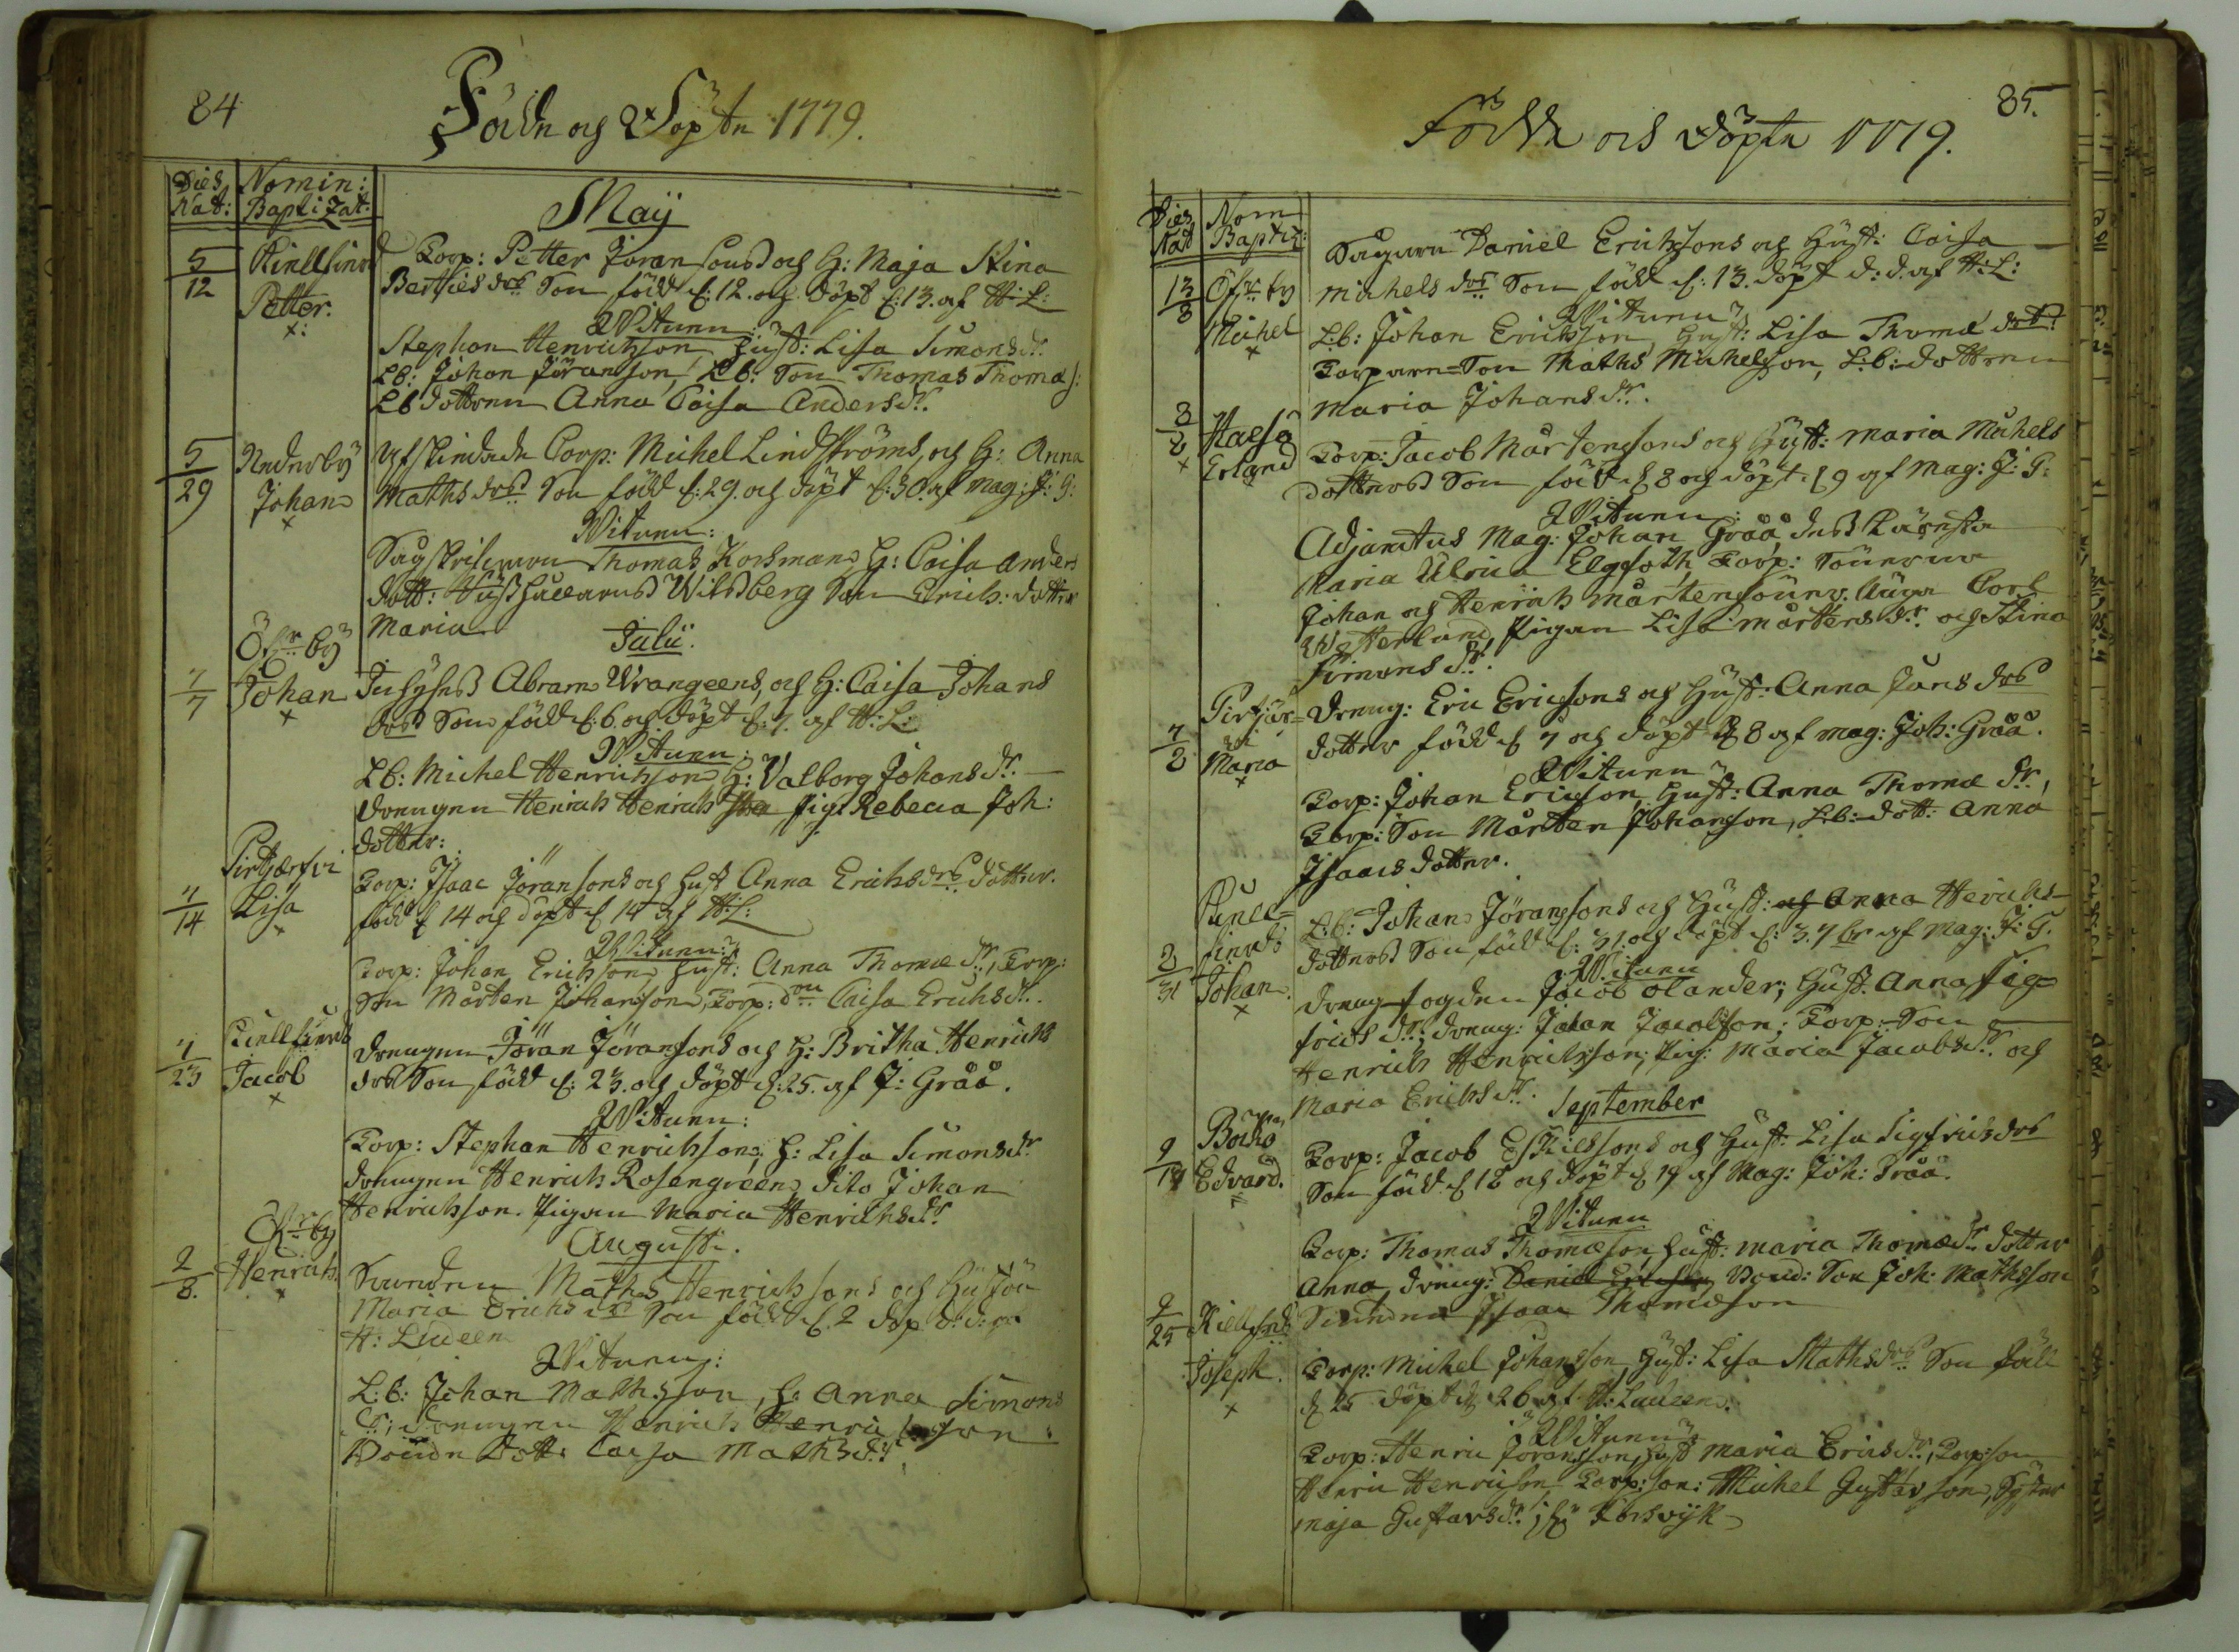 84
Födde och Döpte 1779.
Dies Nat:
Nomin: Baptizat:
Maij
5/12
Kiellsind
Petter.
Torp: Petter Jöransons och H: Maja Stina
Bertilsdrs Son född d: 12. och döpt d: 13. af H: L:
Witnen:
Stephan Henrichsson, Hust: Lisa Simonsdr.
LB: Johan Jöranson, LB: Son Thomas Thomas:
LB dottren Anna Caisa Andersdr.
5/29
Nederby
Johan
Afskiedade Corp: Michel Lindströms, och H: Anna
Mathsdrs Son född d: 29. och döpt d: 30. af Mag: J: G:
Witnen:
Sågskrifvaren Thomas Korsman, H: Caisa Anders
dott: Wildsberg Son Erich: dotter
Maria
Julii.
7/7
Öfverby
Johan
Abram Wrangeens, och H: Caisa Johans
drs Son född d: 6. och döpt d: 7. af H: L:
Witnen:
LB: Michel Henrichsson H: Valborg Johansdr.
Drengen Henrich Henrichsson Pig: Rebecca Joh:
dotter:
7/14
Pirtjerfvi
Lisa
Torp: Isaac Jöransons och Hust Anna Erichsdrs dotter.
född d 14 och döpt d 14 af H: L:
Witnen:
Torp: Johan Erichson, Hust: Anna Thomædr, Torp:
Son Mårten Johansson, Torp: don Caisa Erichsdr.
7/23
Kiellsinds
Jacob
Drengen Jöran Jöransons och H: Britha Henrichs
drs Son född d: 23. och döpt d: 25. af J: Gråå.
Witnen:
Torp: Stephan Henrichson, H: Lisa Simonsdr
Drengen Henrich Rosengreen, dito Johan
Henrichson. Pigan Maria Henrichsdr.
Augusti.
2/8.
Öfverby
Henrich.
Maths Henrichsons och Hustru
Maria Erichsdrs Son född d. 2 döp d: d: af
H: Lucen
Witnen:
L:b: Johan Mathsson, H: Anna Simons
dr; Drengen Henrich Henrichsson
Bonde Dott: Caisa Mathsdr.
85.
Födde och Döpte 1779.
Dies Nat
Nom Baptiz:
13/8
Öfverby
Michel
Sågaren Daniel Erichsons och Hust: Caisa
Michelsdrs Son född d: 13. döpt d: d. af H: L:
Witnen
L:b: Johan Erichsson, Hust: Lisa Thomædott:
Torparen=Son Maths Michelson, L:b: dottren
Maria Johansdr.
8/8
Erland
Torp: Jacob Mårtensons och Hust: Maria Michels
dotters Son född d 8 och döpt d 9 af Mag: J: G:
Witnen:
Adjunctus Mag: Johan Gråå, dess Käresta
Maria Ulrica Elgfoth, Torp: Sönerne
Johan och Henrich Mårtensöner. Corl
Wetterland, Pigan Lisa Mårtensdr. och Stina
Simonsdr.
7/8
Pirtjärfvi
Maria
Dreng: Eric Ericsons och Hust: Anna Larsdrs
dotter född d 7 och döpt d 8 af Mag: Joh: Gråå.
Witnen
Torp: Johan Ericson, Hust: Anna Thomædr,
Torp: Son Mårten Johanson, L:b: dott: Anna
Isaacs dotter.
8/31
Kiell=
sinds
Johan.
L:b: Johan Jöransons och Hust: Anna Henrichs
dotters Son född d: 31. och döpt d: 3. 7br af Mag: J: G.
Witnen
Dreng fogden Jacob Olander; Hust. Anna Sig
fridsdr; Dreng: Johan Jacobson; Torp: Son
Henrich Henrichsson; Pig: Maria Jacobsdr och
Maria Erichsdr.
September
9/19
Edvard.
Torp: Jacob Eskilssons och Hust: Lisa Sigfridsdrs
Son född d 18 och döpt d 19 af Mag: Joh: Gråå.
Witnen
Torp: Thomas Thomæson Hust: Maria Thomædr dotter
Anna, Dreng: Daniel Ericson, Bond: Son Joh: Mathsson
Isaac Thomæson
9/25
Kiellsinds
Joseph.
Torp: Michel Johansson, Hust: Lisa Mathsdrs Son född
d 25 döpt d 26 af H: Lucen.
Witnen
Torp: Henric Jöransson, Hust Maria Ericsdr, Torp: son
Henric Henricson, Torp: son: Michel Gustavson, Syster
Maja Gustavsdr. Korsvijk